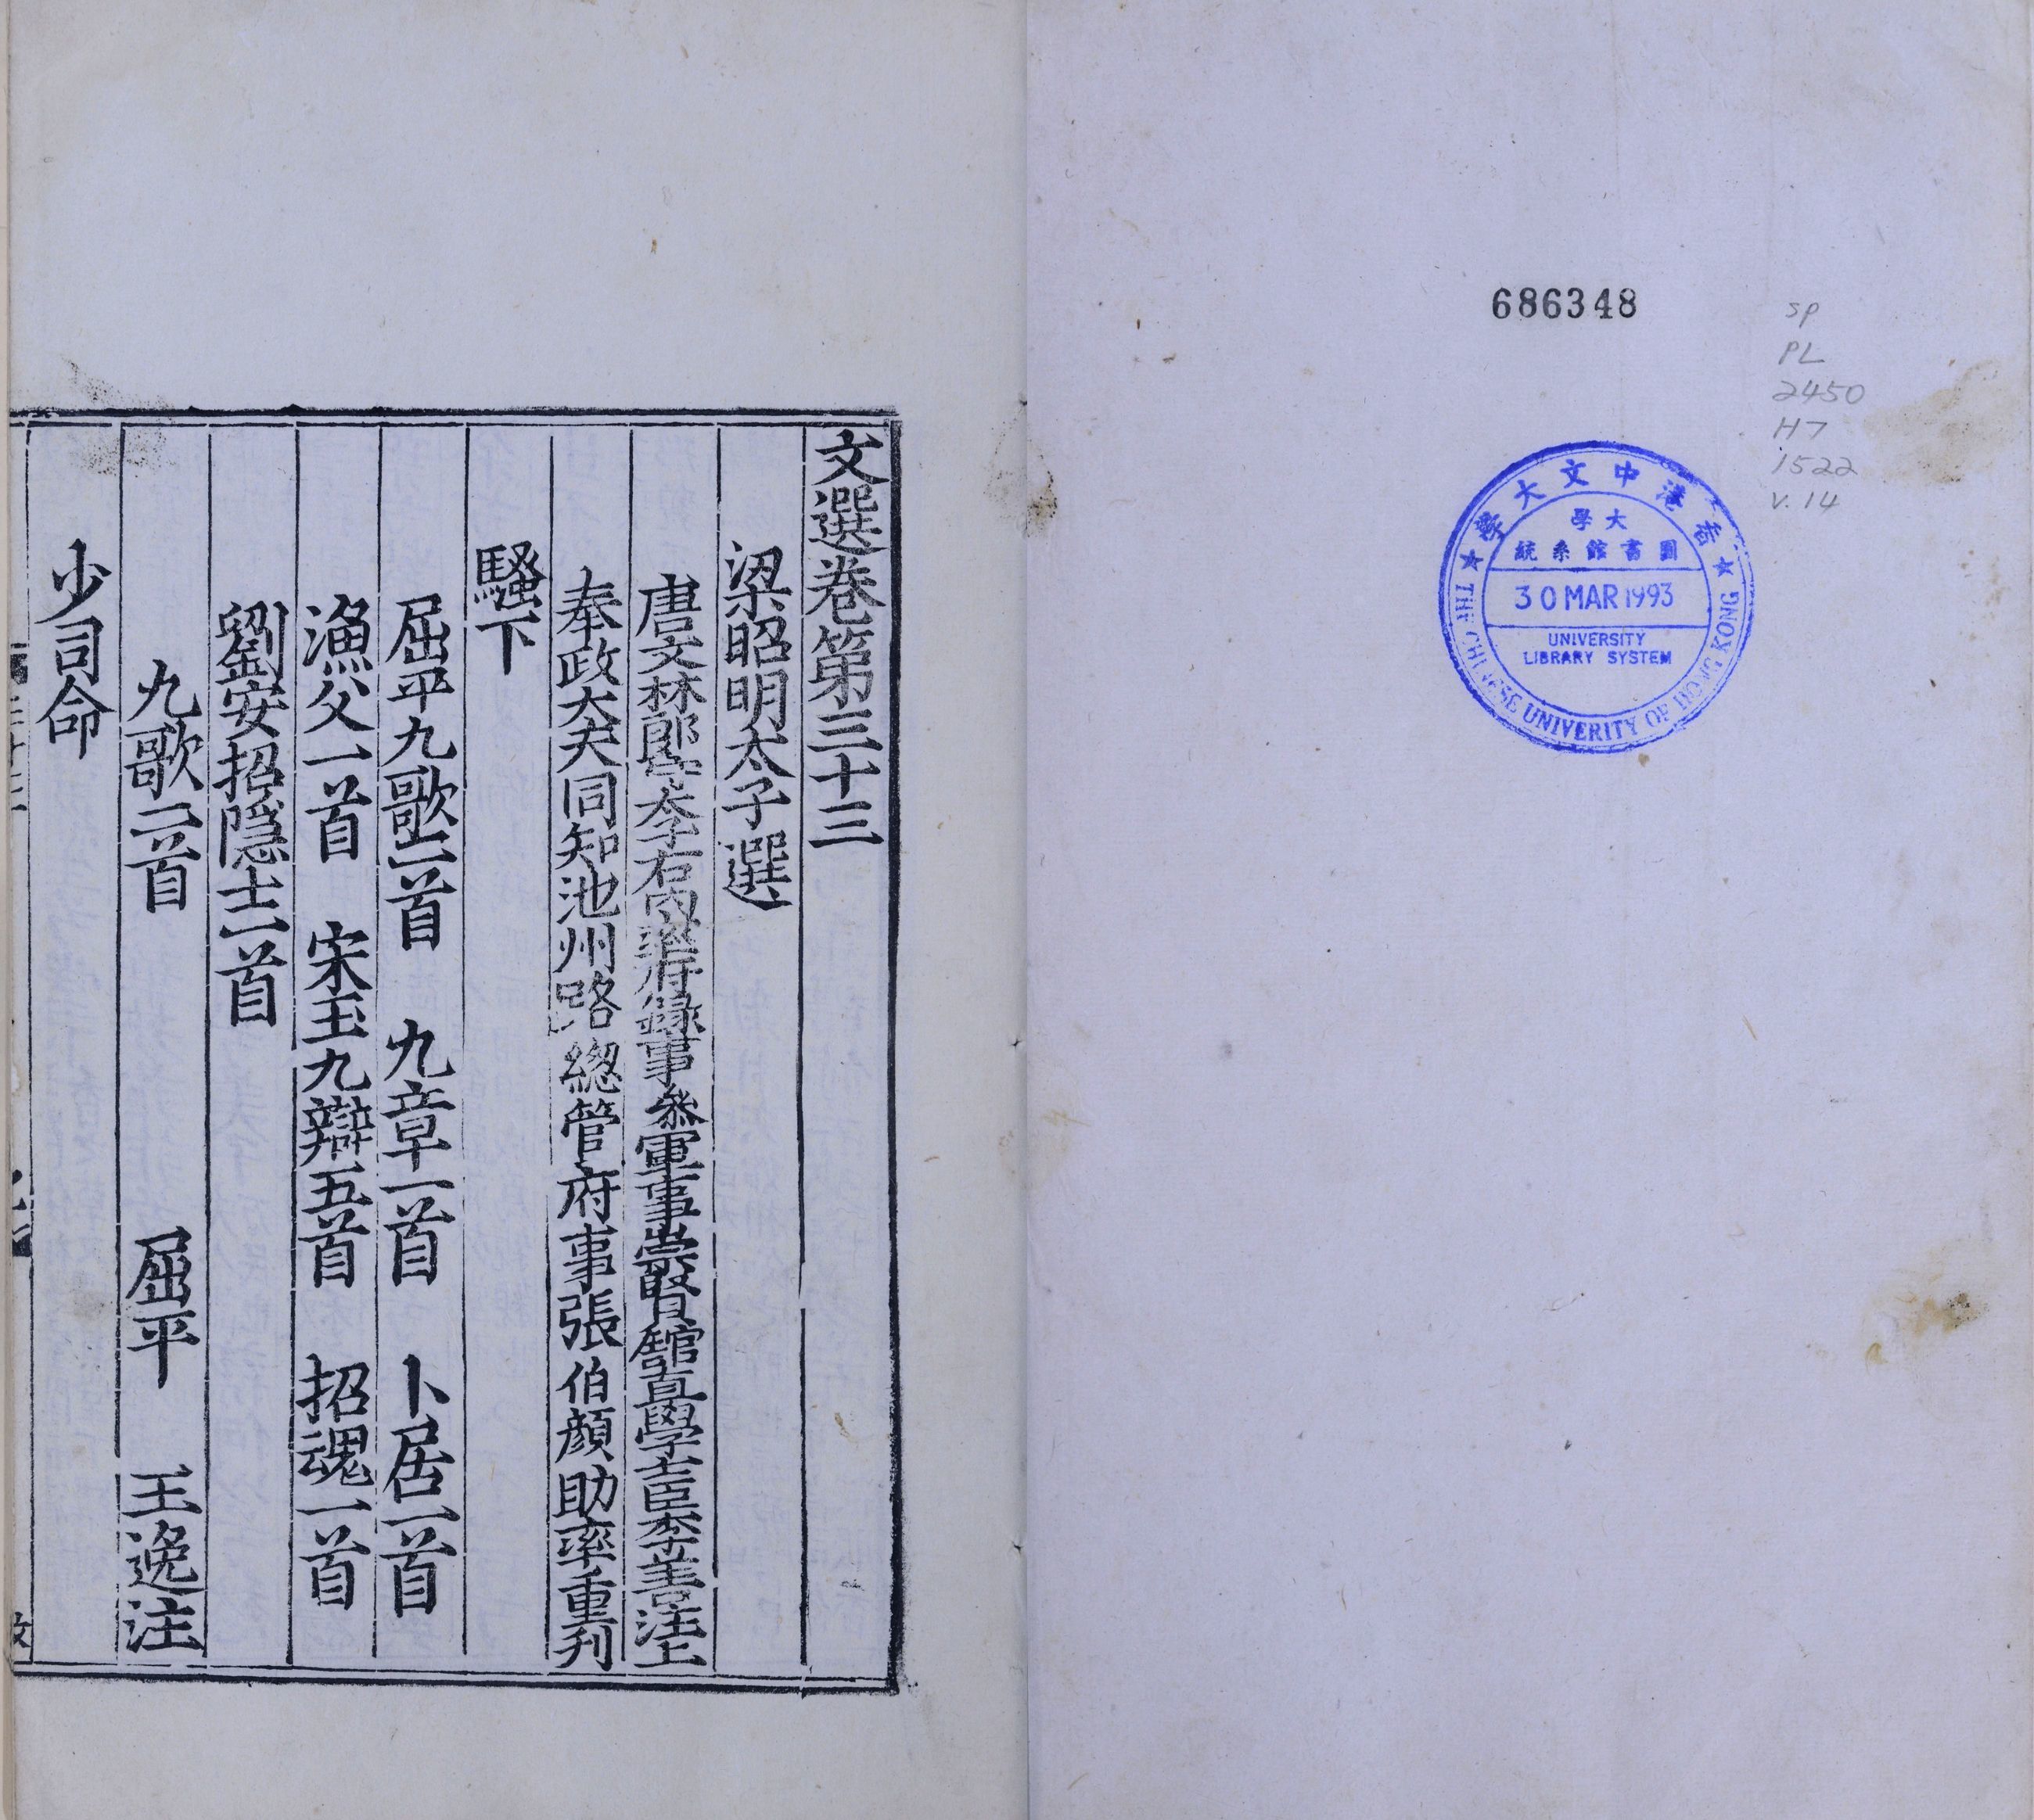 686348
sp
PL
2450
H7
1522
v.14
香港中文大學
大學
圖書館系統
30 MAR 1993
UNIVERSITY
LIBRARY SYSTEM
THE CHINESE UNIVERITY OF HONG KONG
文選卷第三十三
梁昭明太子選
唐文林郎守太子右内率府錄事參軍事崇賢館直學士臣李善注上
奉政大夫同知池州路總管府事張伯顔助率重刋
騷下
屈平九歌二首 九章一首 卜居一首
漁父一首 宋玉九辯五首 招魂一首
劉安招隱士一首
九歌二首 屈平 王逸注
少司命